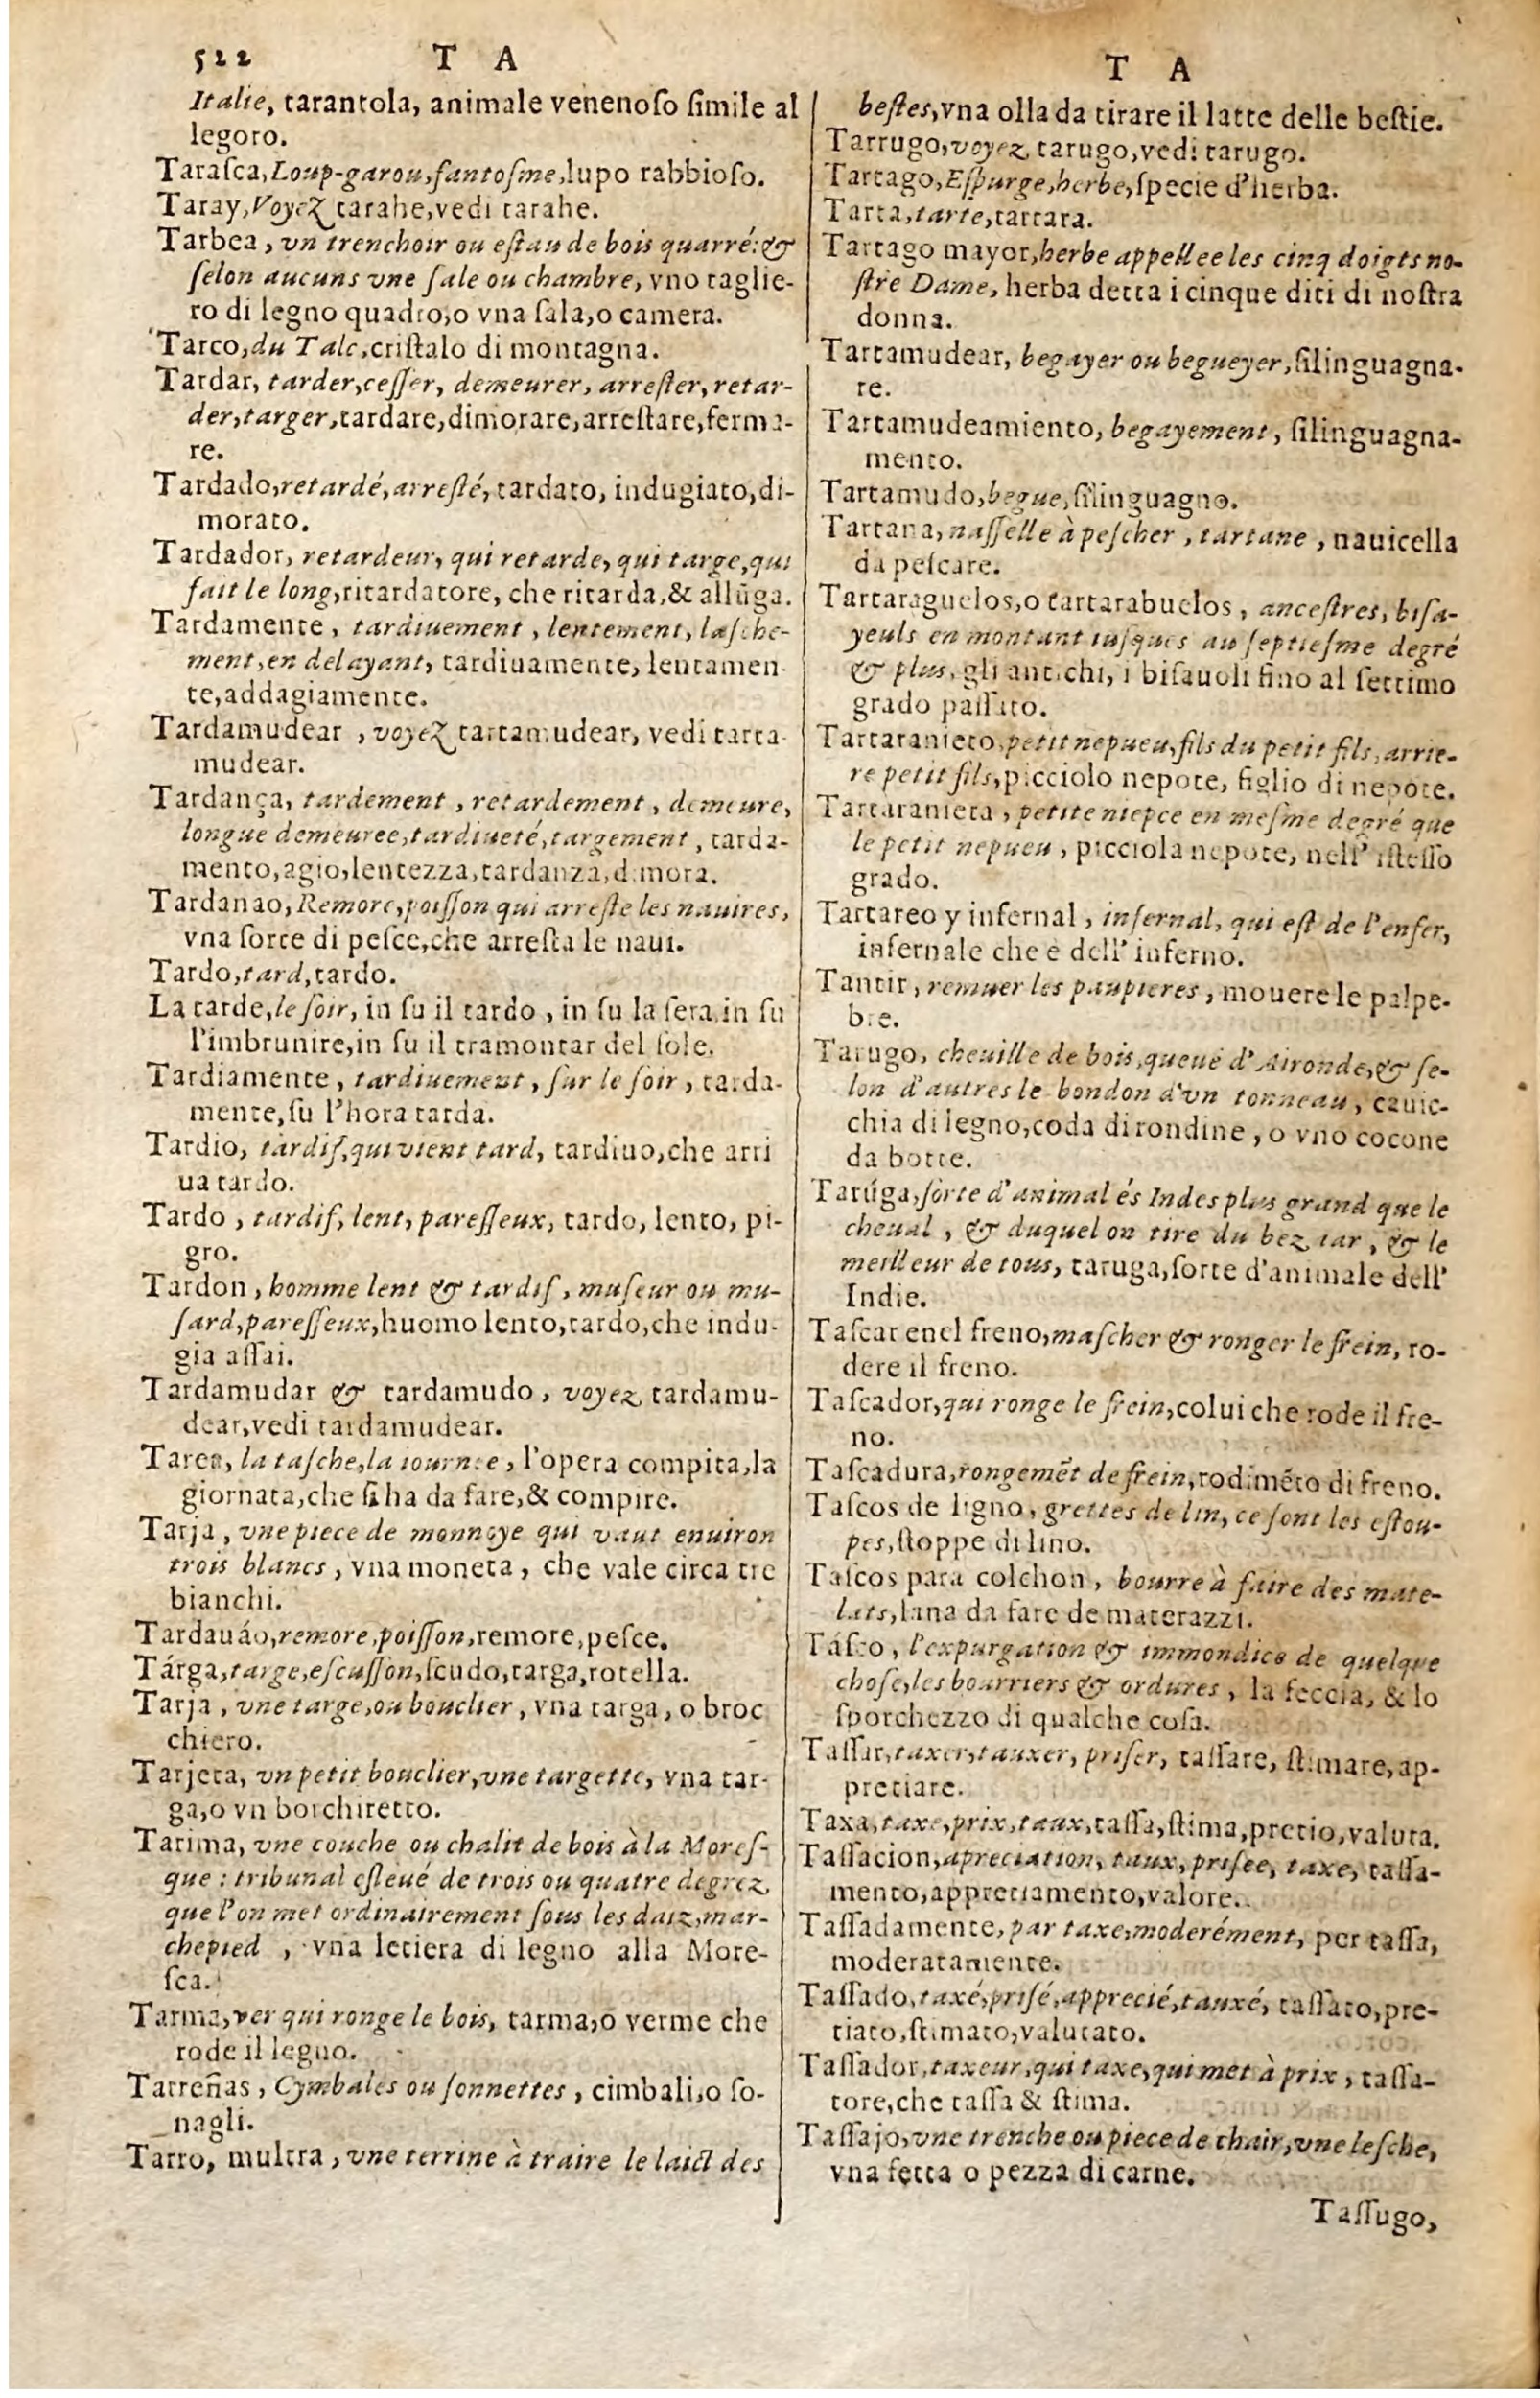 522 T A
Italie, tarantola, animale venenoſo ſimile al
legoro.
Taraſca, Loup-garou, fantoſme, lupo rabbioſo.
Taray, Voyez tarahe, vedi tarahe.
Tarbea, vn trenchoir ou eſtau de bois quarré: &
ſelon aucuns vne ſale ou chambre, vno taglie-
ro di legno quadro, o vna ſala, o camera.
Tarco, du Talc, criſtalo di montagna.
Tardar, tarder, ceſſer, demeurer, arreſter, retar-
der, targer, tardare, dimorare, arreſtare, ferma-
re.
Tardado, retardé, arreſté, tardato, indugiato, di-
morato.
Tardador, retardeur, qui retarde, qui targe, qui
fait le long, ritardatore, che ritarda, & allũga.
Tardamente, tardiuement, lentement, laſche-
ment, en delayant, tardiuamente, lentamen-
te, addagiamente.
Tardamudear, voyez tartamudear, vedi tarta-
mudear.
Tardança, tardement, retardement, demeure,
longue demeuree, tardiueté, targement, tarda-
mento, agio, lentezza, tardanza, dimora.
Tardanao, Remore, poiſſon qui arreſte les nauires,
vna ſorte di peſce, che arreſta le naui.
Tardo, tard, tardo.
La tarde, le ſoir, in ſu il tardo, in ſu la ſera, in ſu
l'imbrunire, in ſu il tramontar del ſole.
Tardiamente, tardiuement, ſur le ſoir, tarda-
mente, ſu l'hora tarda.
Tardio, tardif, qui vient tard, tardiuo, che arri
ua tardo.
Tardo, tardif, lent, pareſſeux, tardo, lento, pi-
gro.
Tardon, homme lent & tardif, muſeur ou mu-
ſard, pareſſeux, huomo lento, tardo, che indu-
gia aſſai.
Tardamudar & tardamudo, voyez tardamu-
dear, vedi tardamudear.
Tarea, la taſche, la iournee, l'opera compita, la
giornata, che ſi ha da fare, & compire.
Tarja, vne piece de monnoye qui vaut enuiron
trois blancs, vna moneta, che vale circa tre
bianchi.
Tardauáo, remore, poiſſon, remore, peſce.
Tárga, targe, eſcuſſon, ſcudo, targa, rotella.
Tarja, vne targe, ou bouclier, vna targa, o broc
chiero.
Tarjeta, vn petit bouclier, vne targette, vna tar-
ga, o vn borchiretto.
Tarima, vne couche ou chalit de bois à la Moreſ-
que: tribunal eſleué de trois ou quatre degrez
que l'on met ordinairement ſous les daiz, mar-
chepied, vna letiera di legno alla More-
ſca.
Tarma, ver qui ronge le bois, tarma, o verme che
rode il legno.
Tarreñas, Cymbales ou ſonnettes, cimbali, o ſo-
nagli.
Tarro, multra, vne terrine à traire le laict des
T A
beſtes, vna olla da tirare il latte delle beſtie.
Tarrugo, voyez tarugo, vedi tarugo.
Tartago, Eſpurge, herbe, ſpecie d'herba.
Tarta, tarte, tartara.
Tartago mayor, herbe appellee les cinq doigts no-
ſtre Dame, herba detta i cinque diti di noſtra
donna.
Tartamudear, begayer ou begueyer, ſilinguagna-
re.
Tartamudeamiento, begayement, ſilinguagna-
mento.
Tartamudo, begue, ſilinguagno.
Tartana, naſſelle à peſcher, tartane, nauicella
da peſcare.
Tartaraguelos, o tartarabuelos, anceſtres, biſa-
yeuls en montant iuſques au ſeptieſme degré
& plus, gli antichi, i biſauoli fino al ſettimo
grado paſſato.
Tartaranieto, petit nepueu, fils du petit fils, arrie-
re petit fils, picciolo nepote, figlio di nepote.
Tartaranieta, petite niepce en meſme degré que
le petit nepueu, picciola nepote, nell' iſteſſo
grado.
Tartareo y infernal, infernal, qui eſt de l'enfer,
infernale che è dell' inferno.
Tantir, remuer les paupieres, mouere le palpe-
bre.
Tarugo, cheuille de bois, queuë d'Aironde, & ſe-
lon d'autres le bondon d'vn tonneau, cauic-
chia di legno, coda di rondine, o vno cocone
da botte.
Tarúga, ſorte d'animal és Indes plus grand que le
cheual, & duquel on tire du bezıar, & le
meilleur de tous, taruga, ſorte d'animale dell'
Indie.
Taſcar enel freno, maſcher & ronger le frein, ro-
dere il freno.
Taſcador, qui ronge le frein, colui che rode il fre-
no.
Taſcadura, rongemẽt de frein, rodimẽto di freno.
Taſcos de ligno, grettes de lin, ce ſont les eſtou-
pes, ſtoppe di lino.
Taſcos para colchon, bourre à faire des mate-
lats, lana da fare de materazzi.
Táſco, l'expurgation & immondice de quelque
choſe, les bourriers & ordures, la feccia, & lo
ſporchezzo di qualche coſa.
Taſſar, taxer, tauxer, priſer, taſſare, ſtimare, ap-
pretiare.
Taxa, taxe, prix, taux, taſſa, ſtima, pretio, valuta.
Taſſacion, apreciation, taux, priſee, taxe, taſſa-
mento, appretiamento, valore.
Taſſadamente, par taxe, moderément, per taſſa,
moderatamente.
Taſſado, taxé, priſé, apprecié, tauxé, taſſato, pre-
tiato, ſtimato, valutato.
Taſſador, taxeur, qui taxe, qui met à prix, taſſa-
tore, che taſſa & ſtima.
Taſſajo, vne trenche ou piece de chair, vne leſche,
vna fetta o pezza di carne.
Taſſugo,